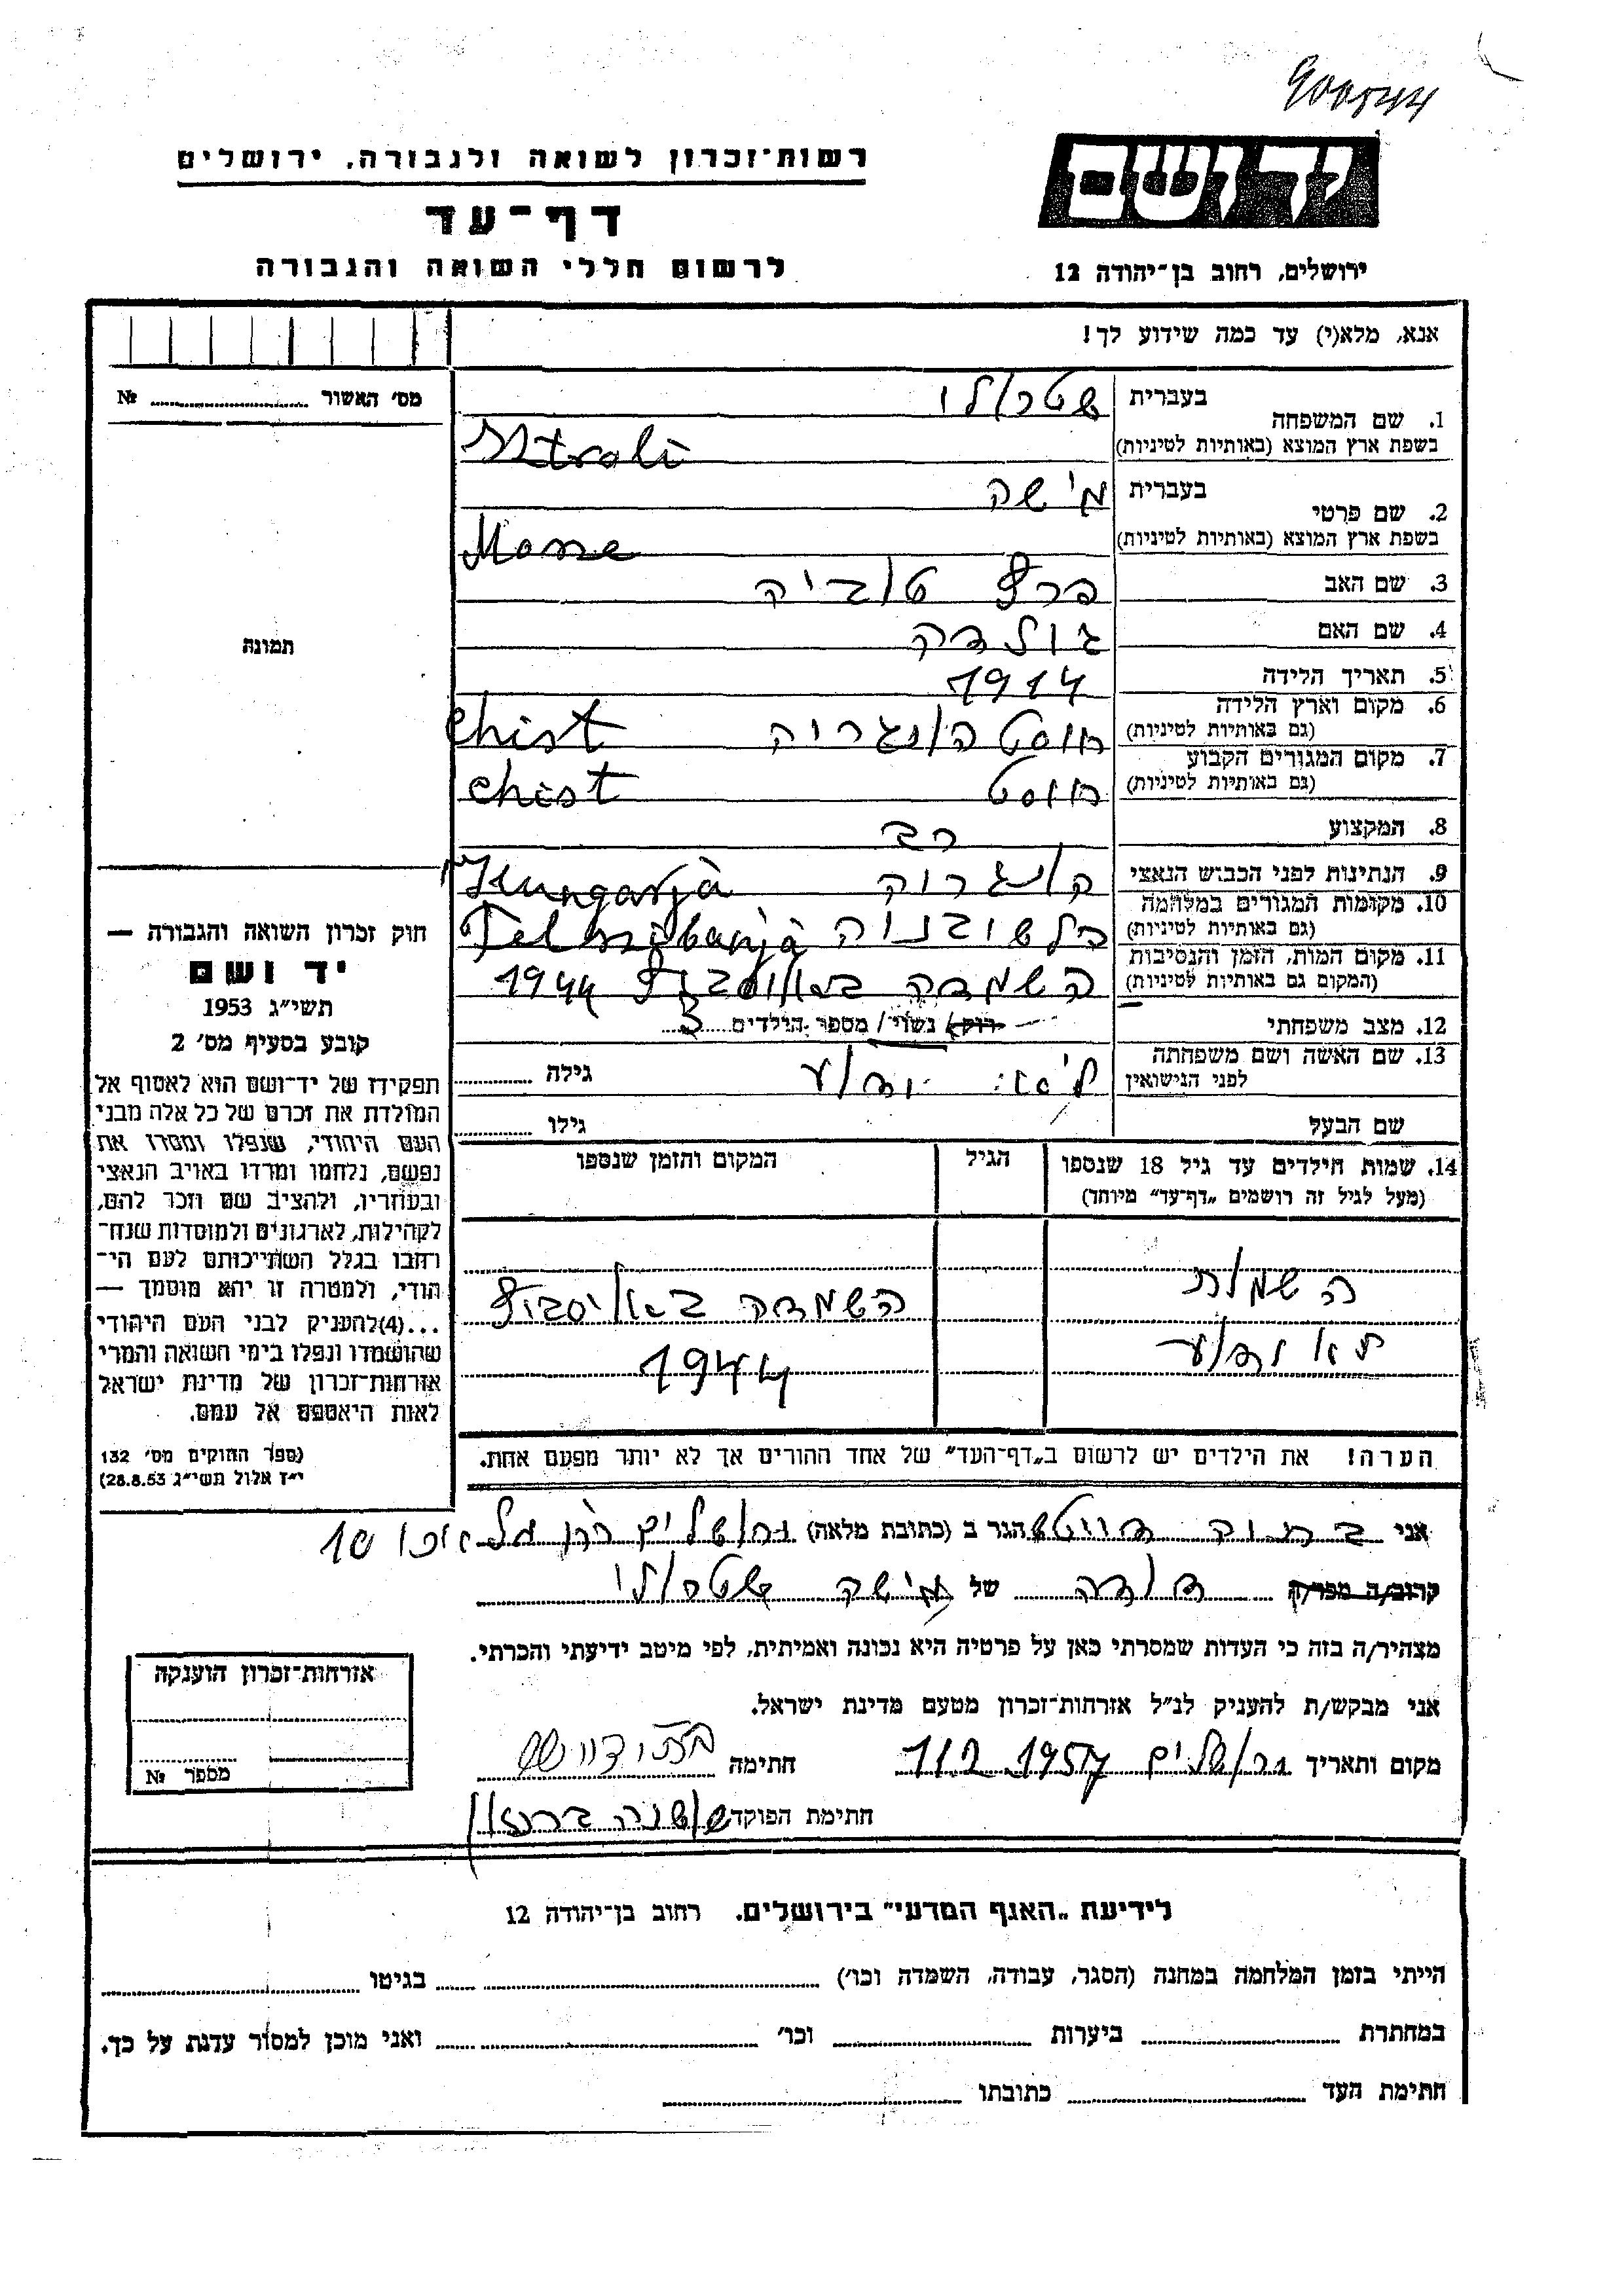 900544
רשות־זכרון לשואה ולגבורה, ירושלים
יד ושם
דף־עד
לרשום חללי השואה והגבורה
ירושלים, רחוב בן־יהודה 12
אנא, מלא(י) עד כמה שידוע לך!
מס׳ האשור № 
1. שם המשפחה בעברית שטרולי
בשפת ארץ המוצא (באותיות לטיניות) Stroli
2. שם פרטי בעברית מישה
בשפת ארץ המוצא (באותיות לטיניות)
3. שם האב פרץ טוביה
4. שם האם גולדה
5. תאריך הלידה 1914
6. מקום וארץ הלידה (גם באותיות לטיניות) חוסט הונגריה Chist
7. מקום המגורים הקבוע (גם באותיות לטיניות) חוסט Chist
8. המקצוע רב
9. הנתינות לפני הכבוש הנאצי Hungarja
10. מקומות המגורים במלחמה (גם באותיות לטיניות)
11. מקום המות, הזמן והנסיבות (המקום גם באותיות לטיניות) השמדה 1944
12. מצב משפחתי רוק/ נשוי/ מספר הילדים 3
13. שם האשה ושם משפחתה לפני הנישואין גילה
שם הבעל גילו
תמונה
חוק זכרון השואה והגבורה —
יד ושם
תשי״ג 1953
קובע בסעיף מס׳ 2
תפקידו של יד־ושם הוא לאסוף אל
המולדת את זכרם של כל אלה מבני
העם היהודי, שנפלו ומסרו את
נפשם, נלחמו ומרדו באויב הנאצי
ובעוזריו, ולהציב שם וזכר להם,
לקהילות, לארגונים ולמוסדות שנח־
רבו בגלל השתייכותם לעם הי־
הודי, ולמטרה זו יהא מוסמך —
...(4)להעניק לבני העם היהודי
שהושמדו ונפלו בימי השואה והמרי
אזרחות־זכרון של מדינת ישראל
לאות היאספם אל עמם.
(ספר החוקים מס׳ 132
י״ז אלול תשי״ג 28.8.53)
14. שמות הילדים עד גיל 18 שנספו הגיל המקום והזמן שנספו
(מעל לגיל זה רושמים „דף־עד״ מיוחד)
השמות השמדה
לא ידוע 1944
הערה! את הילדים יש לרשום ב„דף־העד״ של אחד ההורים אך לא יותר מפעם אחת.
אני הגר ב (כתובת מלאה) ירושלים
קרוב/ה מכר/ה דודה של מישה שטרולי
מצהיר/ה בזה כי העדות שמסרתי כאן על פרטיה היא נכונה ואמיתית, לפי מיטב ידיעתי והכרתי.
אני מבקש/ת להעניק לנ״ל אזרחות־זכרון מטעם מדינת ישראל.
מקום ותאריך ירושלים חתימה
חתימת הפוקד שושנה
אזרחות־זכרון הוענקה
מספר №
לידיעת „האגף המדעי״ בירושלים, רחוב בן־יהודה 12
הייתי בזמן המלחמה במחנה (הסגר, עבודה, השמדה וכו׳) בגיטו
במחתרת ביערות וכו׳ ואני מוכן למסור עדות על כך.
חתימת העד כתובתו